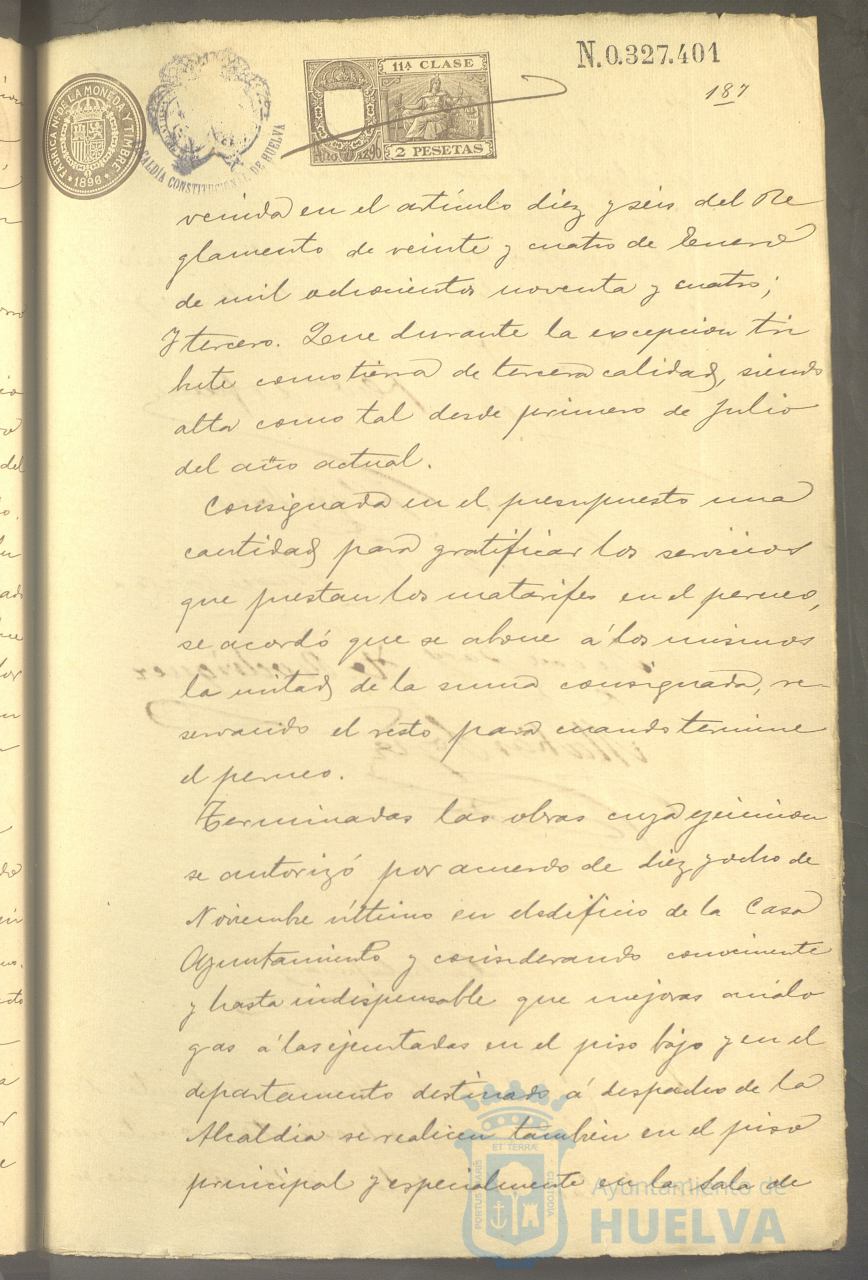 N.0.327.401
187
FABRICA NAL DE LA MONEDA Y TIMBRE
* 1896 *
ALCALDÍA CONSTITUCIONAL DE HUELVA
11ª CLASE
Año D 1896
2 PESETAS
venida en el artículo diez y seis del Re
glamento de veinte y cuatro de Enero
de mil ochocientos noventa y cuatro;
Y tercero. Que durante la excepcion tri
bute como tierra de tercera calidad, siendo
alta como tal desde primero de Julio
del año actual.
Consignada en el presupuesto una
cantidad para gratificar los servicios
que prestan los matarifes en el perneo,
se acordó que se abone á los mismos
la mitad de la suma consignada, re-
servando el resto para cuando termine
el perneo.
Terminadas las obras cuya ejecucion
se autorizó por acuerdo de diez y ocho de
Noviembre último en el edificio de la Casa
Ayuntamiento y considerando conveniente
y hasta indispensable que mejoras análo
gas á las ejecutadas en el piso bajo y en el
departamento destinado á despacho de la
Alcaldia se realicen tambien en el piso
principal y especialmente en la Sala de
PORTUS MARIS
ET TERRÆ
CUSTODIA
Ayuntamiento de
HUELVA